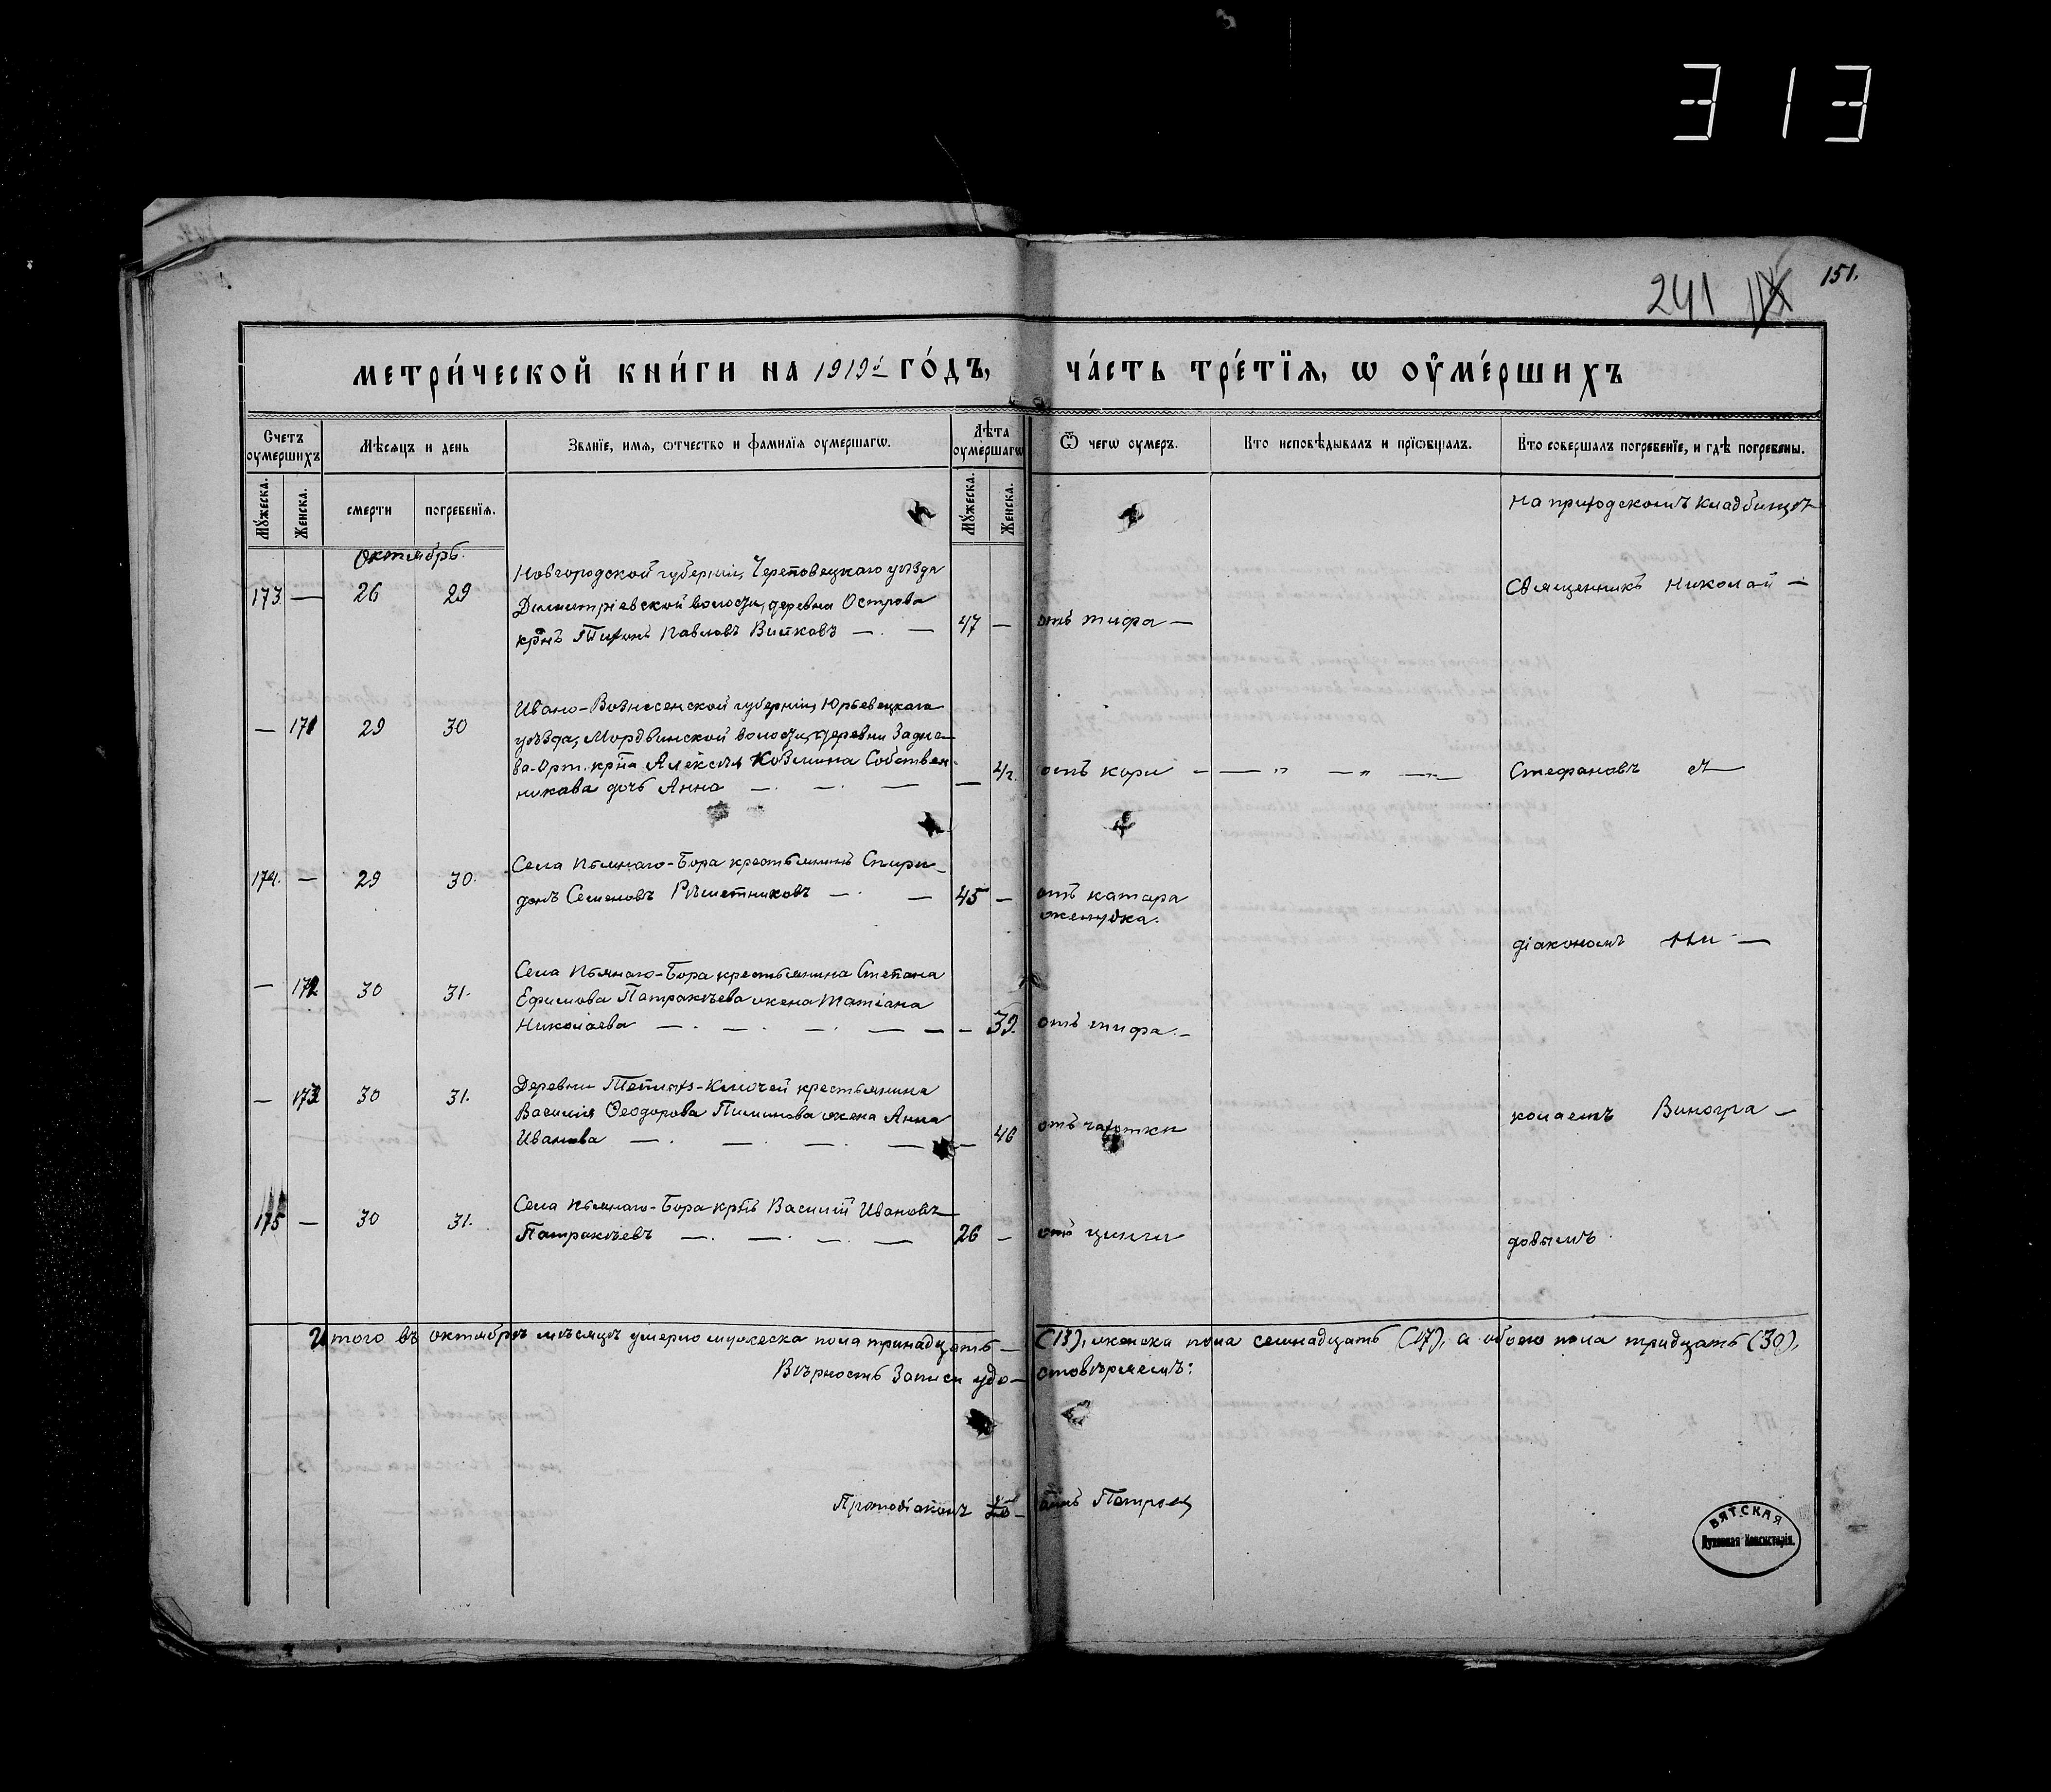 313
241
151.
МЕТРИ́ЧЕСКОЙ КНИ́ГИ НА 1919й ГО́ДЪ, ЧА́СТЬ ТРЕ́ТЇЯ, Ѡ ОУ҆МЕ́РШИХЪ
Счетъ оумершихъ
Мѣсяцъ и день
Званїе, имя, ѿтчество и фамилїя оумершагѡ.
Лѣта оумершагѡ
Ѿ чегѡ оумеръ.
Кто исповѣдывалъ и прїѡбщалъ.
Кто совершалъ погребенїе, и гдѣ погребены.
Мꙋжеска.
Женска.
смерти
погребенїя.
Мꙋжеска.
Женска.
На приходскомъ кладбищѣ
Октябрь.
Новгородской губерніи, Череповецкаго уѣзда
173 — 26 29 Димитріевской волости, деревни Острова
крнъ Тихонъ Павловъ Витковъ — . — 47 — отъ тифа —
Священникъ Николай —
Ивано-Вознесенской губерніи, Юрьевецкаго
— 171 29 30 уѣзда, Мордвинской волости, деревни Задне-
ва-Орт. крна Алексѣя Козмина Собствен-
никова дочь Анна — . — . — — 4/г. отъ кори — — „ — „ —„—
Стефановъ съ —
Села Пьянаго-Бора крестьянинъ Спири-
174. — 29 30. донъ Семеновъ Рѣшетниковъ — . — 45 — отъ катара
желудка.
діакономъ Ни —
Села Пьянаго-Бора крестьянина Степана
— 172 30 31. Ефимова Патракѣева жена Татіана
Николаева — . — . — . — — — 39. отъ тифа. —
Деревни Теплыхъ-Ключей крестьянина
— 173 30 31. Василія Ѳеодорова Пиминова жена Анна
Иванова — . — . — . — — 40 отъ чахотки
колаемъ Виногра —
Села Пьянаго-Бора крнъ Василій Ивановъ
175 — 30 31. Патракѣевъ — . — . — . — 26 — отъ цинги
довымъ.
Итого въ октябрѣ мѣсяцѣ умерло мужеска пола тринадцать — (13), женска пола семнадцать (17), а обоего пола тридцать (30).
Вѣрность записи удо— стовѣряемъ:
Протодіаконъ
ВЯТСКАЯ
Духовная Консисторія.